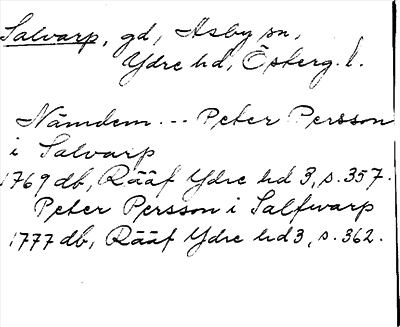 Salvarp, gd, Asby sn,
Ydre hd, Österg. l.
Nämdem... Peter Persson
i Salvarp
1769 db, Rääf Ydre hd 3, s. 357.
Peter Persson i Salfwarp
1777 db, Rääf Ydre hd 3, s. 362.